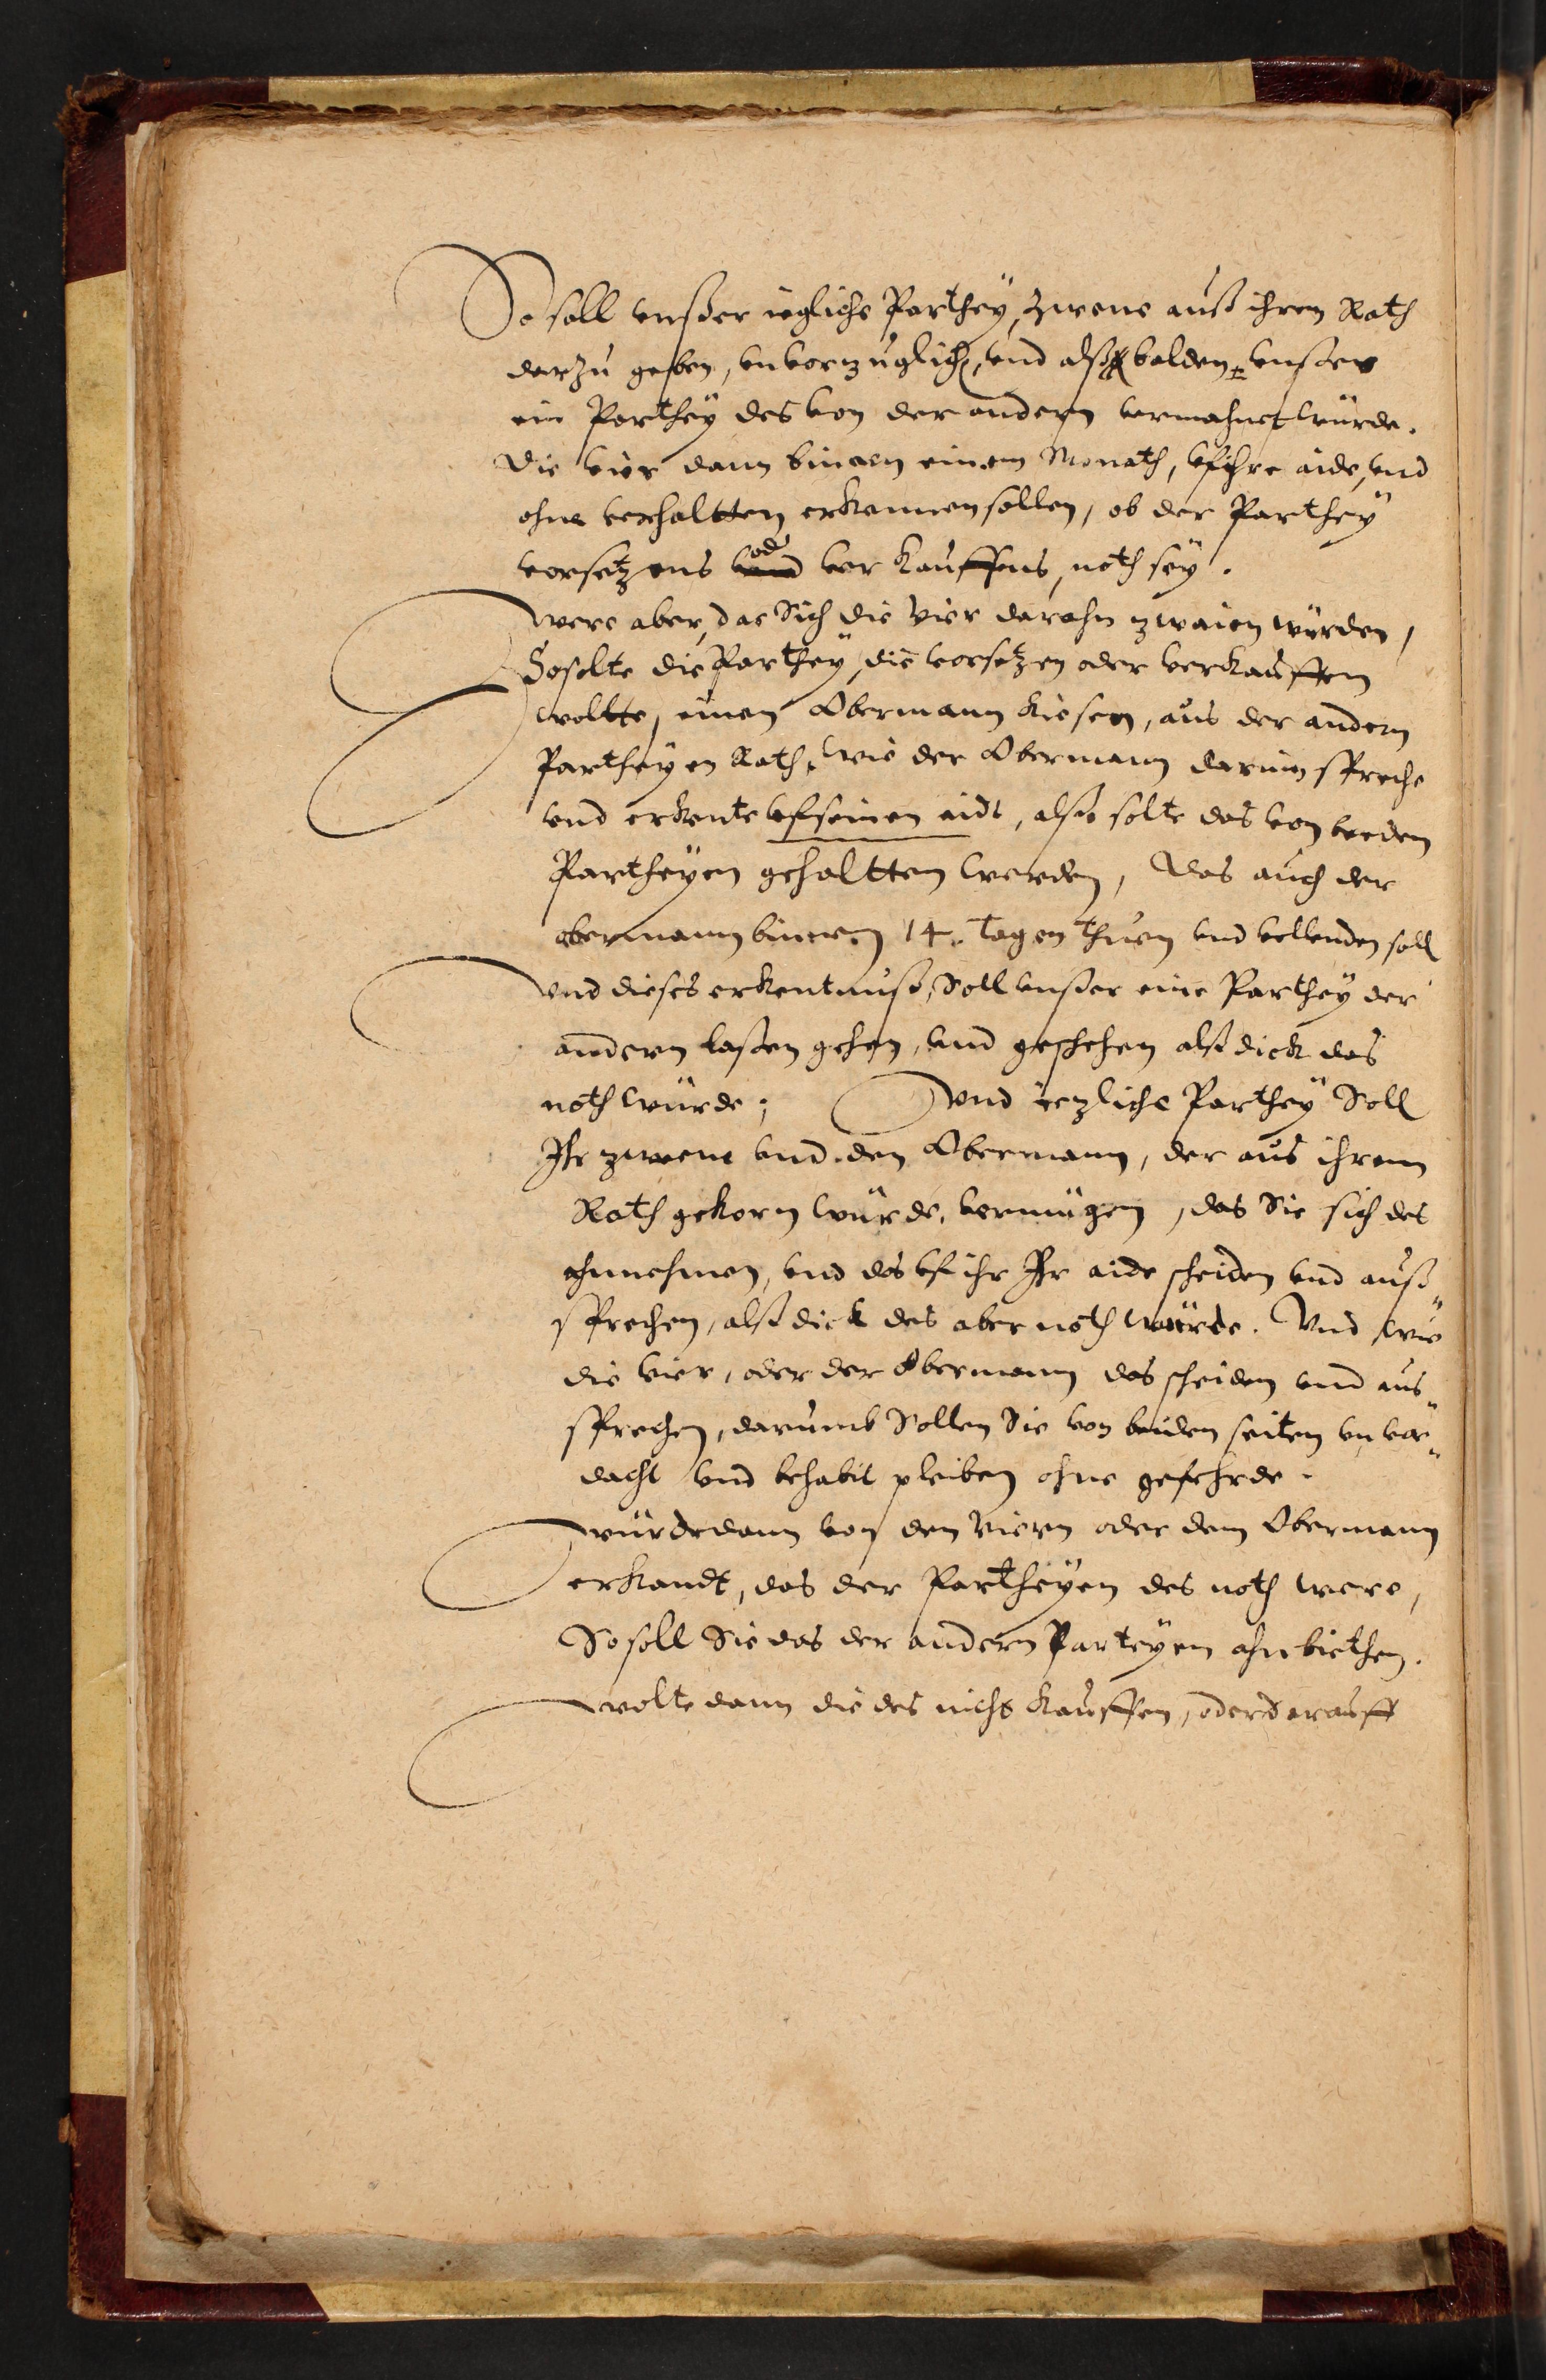 So soll vnßer iegliche Parthey, zwene auß ihren Rath
darzu geben, vnvorzüglich, vnd alß balden vnßer
ein Parthey des von der andern vermahnet würde.
Die vier dann binnen einem Monath, vf ihre aide, vnd
ohne verhaltten erkennen sollen, ob der Parthey
vorsetzens vnd od verkauffens, noth sey.
Were aber, das Sich die Vier darahn zwaien würden,
So solte die Parthey, die vorsetzen oder verkauffen
woltte, einen Obermann kiesen, aus der andern
Partheyen Rath, wie der Obermann darinn spreche
vnd erkente vf seinen aidt, also solte das von beeden
Partheyen gehaltten werden, Das auch der
obermann binnen 14. Tagen thuen vnd vollenden soll
Vnd dieses erkentnuß, Soll vnßer eine Parthey der
andern laßen gehen, vnd geschehen alß dick das
noth würde; Vnd ietzliche Parthey Soll
Ihr zweene vnd den Obermann, der aus ihrem
Rath gekorn würde, vermügen, das Sie sich des
ahnnehmen, vnd das vf ihr Ihr aide scheiden vnd auß„
sprechen, alß dick des aber noth würde. Vnd wie
die vier, oder der Obermann das scheiden vnd aus„
sprechen, darumb Sollen Sie von beiden seiten vnver„
dacht vnd behabit pleiben ohne gefehrde.
Würde dann von den Viern oder dem Obermann
erkandt, das der Partheyen des noth were,
So soll Sie das der andern Parteyen ahnbiethen.
Wolte dann die des nicht kauffen, oder darauff